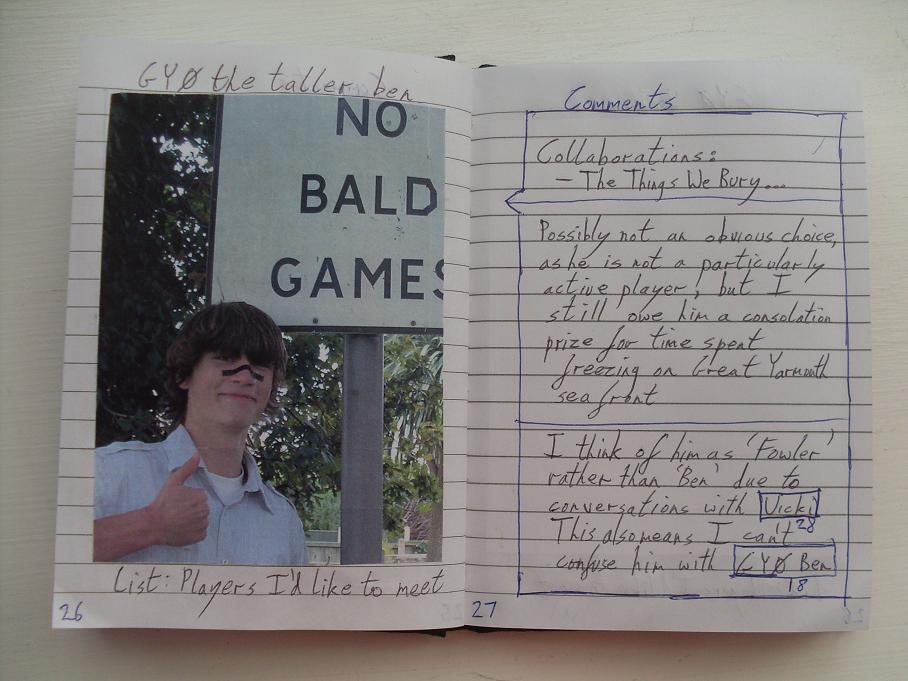 GYØ the taller ben
NO
BALD
GAMES
List: Players I'd like to meet
26
Comments
Collaborations:
– The Things We Bury...
Possibly not an obvious choice,
as he is not a particularly
active player, but I
still owe him a consolation
prize for time spent
freezing on Great Yarmouth
sea front
I think of him as 'Fowler'
rather than 'Ben' due to
conversations with Vicki
28
This also means I can't
confuse him with GYØ Ben
18
27